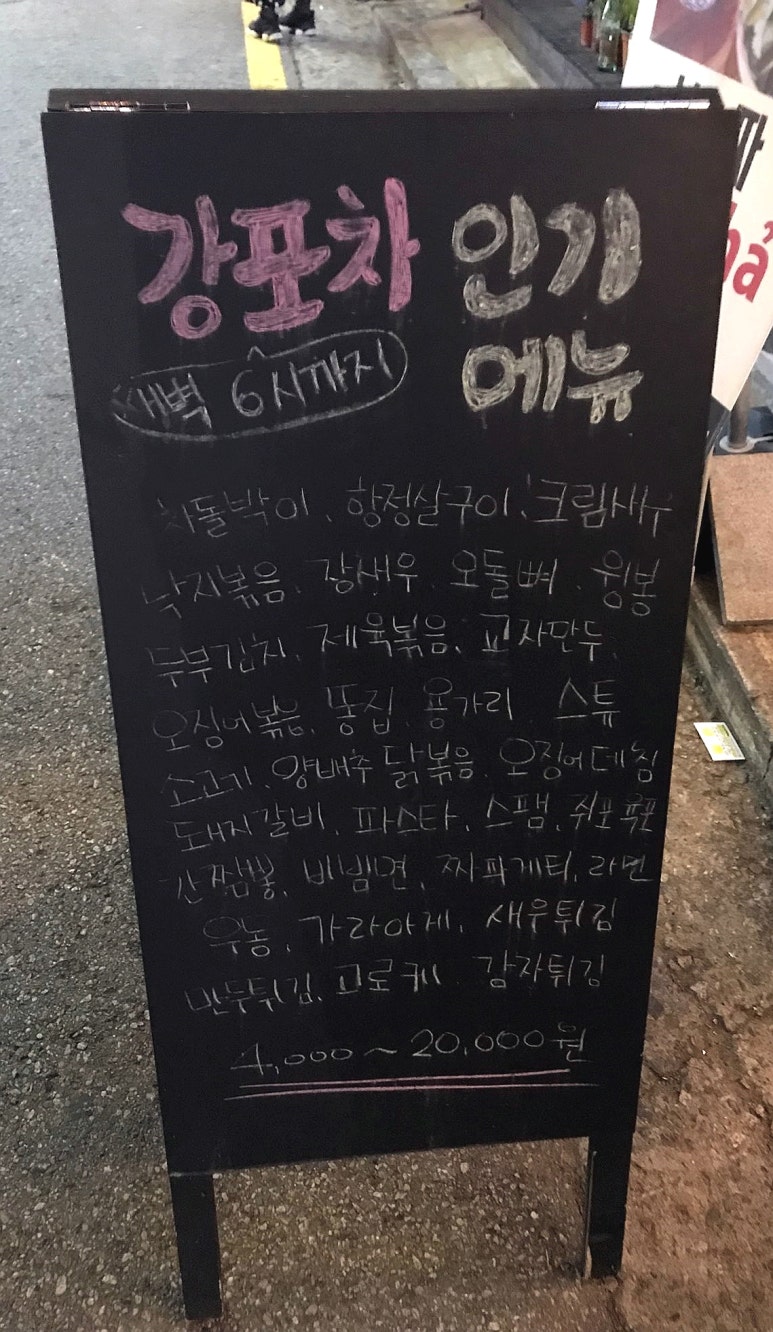 강포차 인기
메뉴
새벽 6시까지
차돌박이, 항정살구이, 크림새우
낙지볶음, 깡새우, 오돌뼈, 윙봉
두부김치, 제육볶음, 교자만두,
오징어볶음, 똥집, 용가리, 스튜
소고기, 양배추 닭볶음, 오징어데침
돼지갈비, 파스타, 스팸, 쥐포 육포
간짬뽕, 비빔면, 짜파게티, 라면
우동, 가라아게, 새우튀김
만두튀김, 고로케, 감자튀김
4,000~20,000원